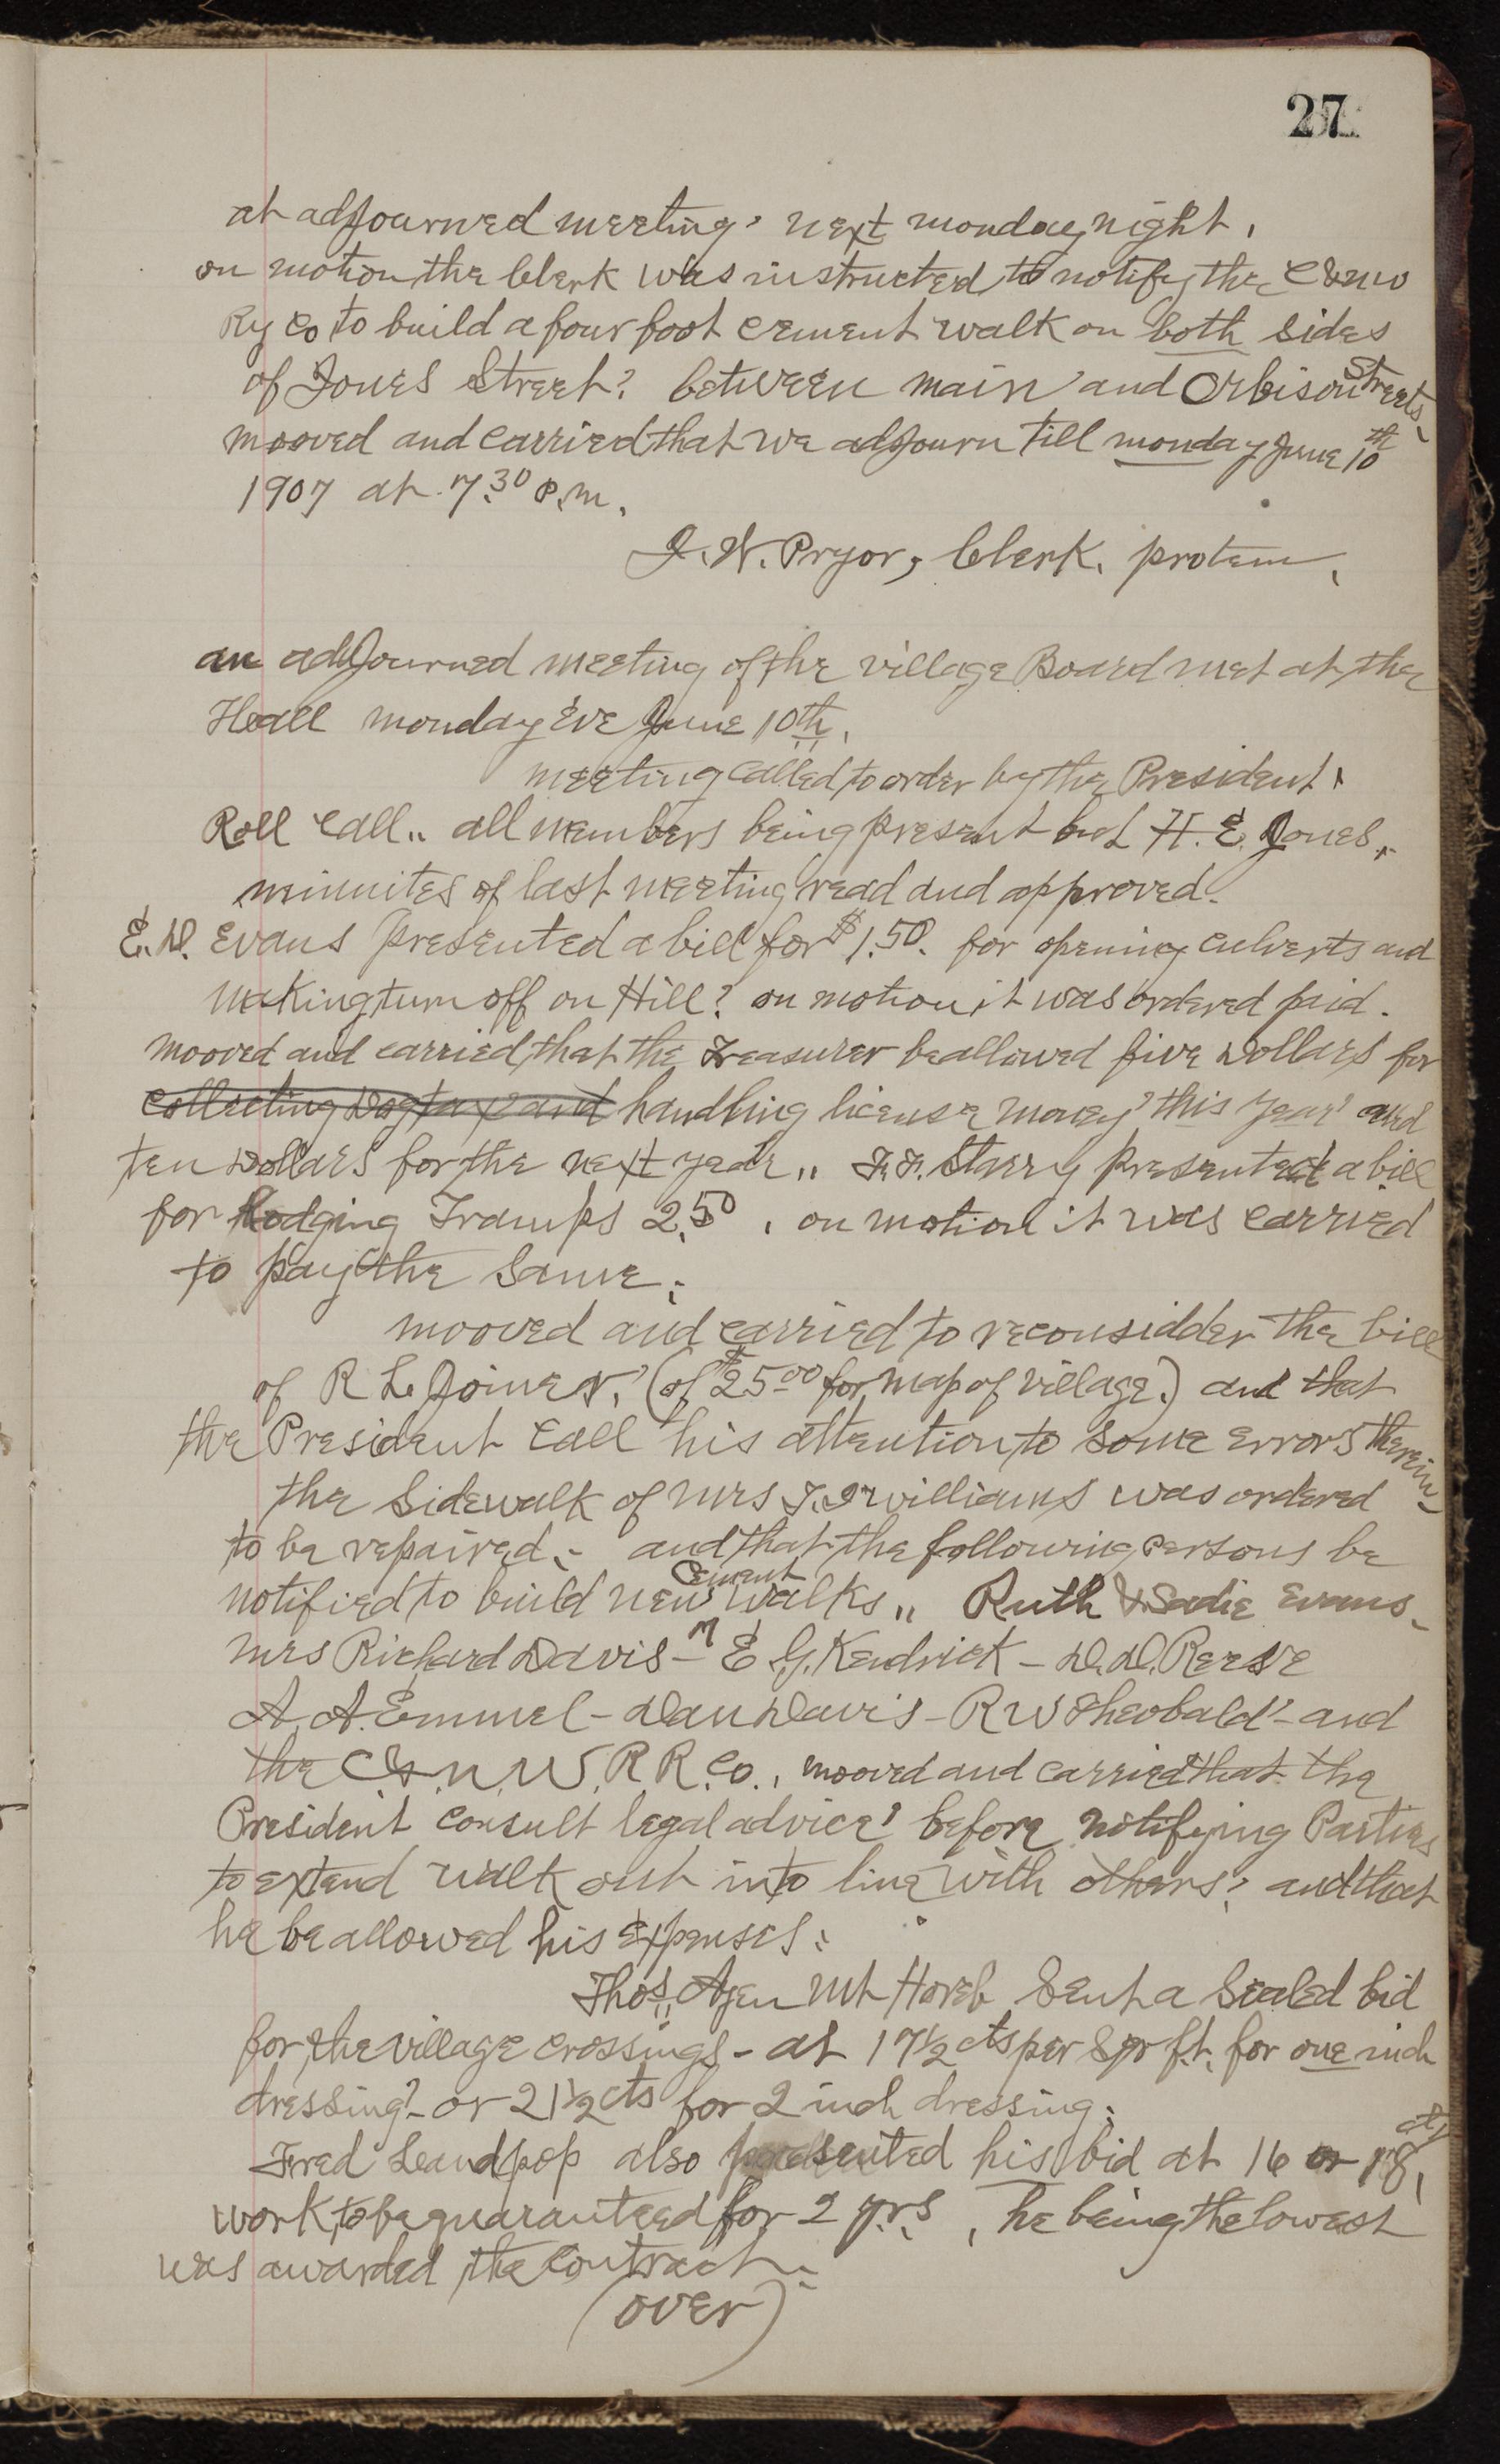 27
at adjourned meeting, next monday night.
on motion the Clerk was instructed to notify the C&NW
Ry Co to build a four foot cement walk on both sides
of Jones Street? between main and Orbison Streets.
mooved and carried that we adjourn till monday June 10th
1907 at 7.30 P.M.
J. W. Pryor, Clerk. protem.
an adjourned meeting of the village Board met at the
Hall monday Eve June 10th.
meeting called to order by the President.
Roll call.. all members being present but H. E. Jones.
minnites of last meeting read and approved.
E. D. Evans presented a bill for $1.50. for opening culverts and
making turn off on Hill? on motion it was ordered paid.
mooved and carried that the Treasurer be allowed five Dollars for
collecting Dog tax and handling license money' this year' and
ten Dollars for the next year,, F. F. Starry presented a bill
for Lodging Tramps 2.50, on motion it was carried
to pay the same.
mooved and carried to reconsidder the bill
of R L Joiner, (of $25.00 for map of village.) and that
the President call his attention to some errors therein-
the Sidewalk of Mrs williams was ordered
to be repaired.- and that the following persons be
notified to build new Cement walks,, Ruth & Sadie Evans-
Mrs Richard Davis - E. G. Kendrick - D. D. Reese
A. A. Emmel - Dan Davis - R W Theobald - and
the C. & N. W. R R. Co., mooved and carried that the
President consult legal advice' before notifying Parties
to extend walk out into line with others? and that
he be allowed his expenses.
Thos. Agen Mt Horeb Sent a Sealed bid
for the village crossings - at 17½ cts per Sqr ft. for one inch
dressing?- or 21½ cts for 2 inch dressing.
Fred Landpop also presented his bid at 16 or 18 cts,
work to be guaranteed for 2 yrs, he being the lowest
was awarded the contract.
(over)